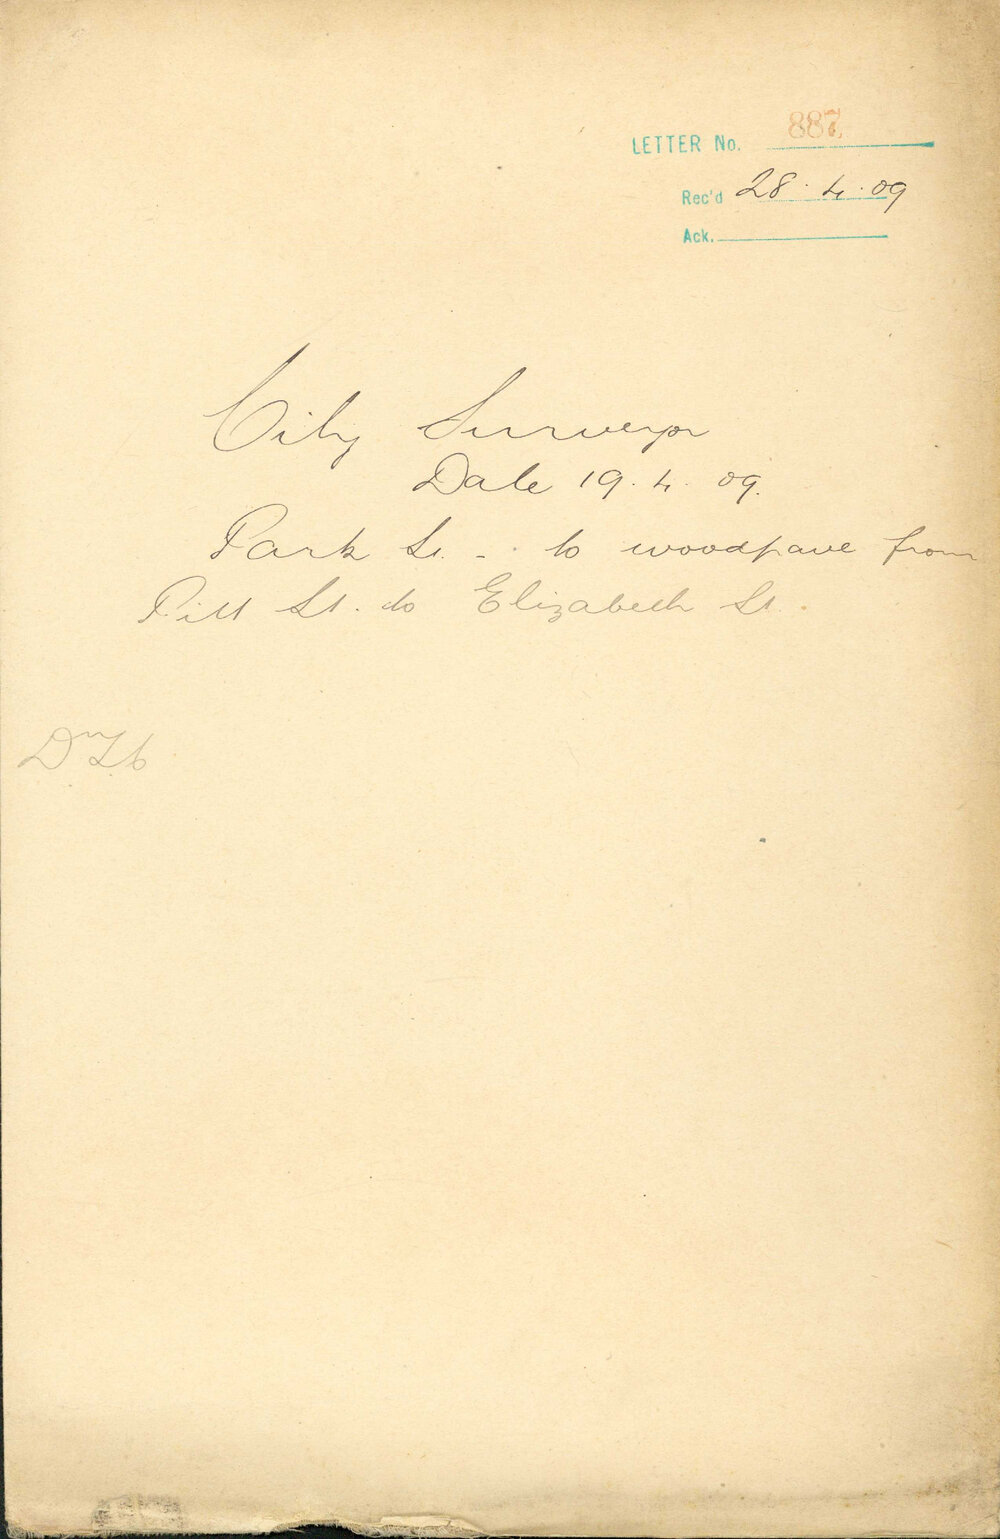 LETTER No. 887
Rec'd 28.4.09
Ack.
City Surveyor
Date 19.4.09.
Park St. - to woodpave from
Pitt St. to Elizabeth St.